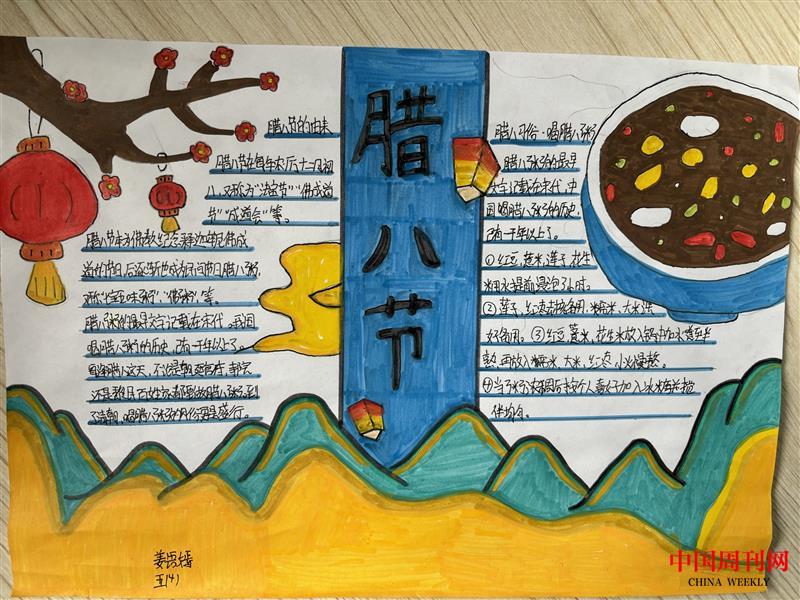 腊八节
腊八节的由来
腊八节在每年农历十二月初
八,又称为“法宝节”“佛成道
节”“成道会”等。
腊八节本为佛教纪念释迦牟尼佛成
道的节日,后逐渐也成为民间节日腊八粥,
又称“七宝五味粥”“佛粥”等。
腊八粥的最早文字记载在宋代。我国
喝腊八粥的历史,已有一千年以上了。
每逢腊八这天,不论是朝廷官府、寺院
还是黎民百姓家都要做腊八粥,到
了清朝,喝腊八粥的风俗更是盛行。
腊八习俗·喝腊八粥
腊八粥的最早
文字记载在宋代,中
国喝腊八粥的历史,
已有一千年以上了。
①红豆、薏米、莲子、花生
用水提前浸泡3小时。
②莲子、红枣去核备用,糯米、大米洗
好备用。③红豆、薏米、花生米放入锅中加水煮至半
熟,再放入糯米、大米、红枣,小火慢熬。
④当粥浓稠后按个人喜好加入冰糖
伴均。
姜
五(4)
中国周刊网
CHINA WEEKLY